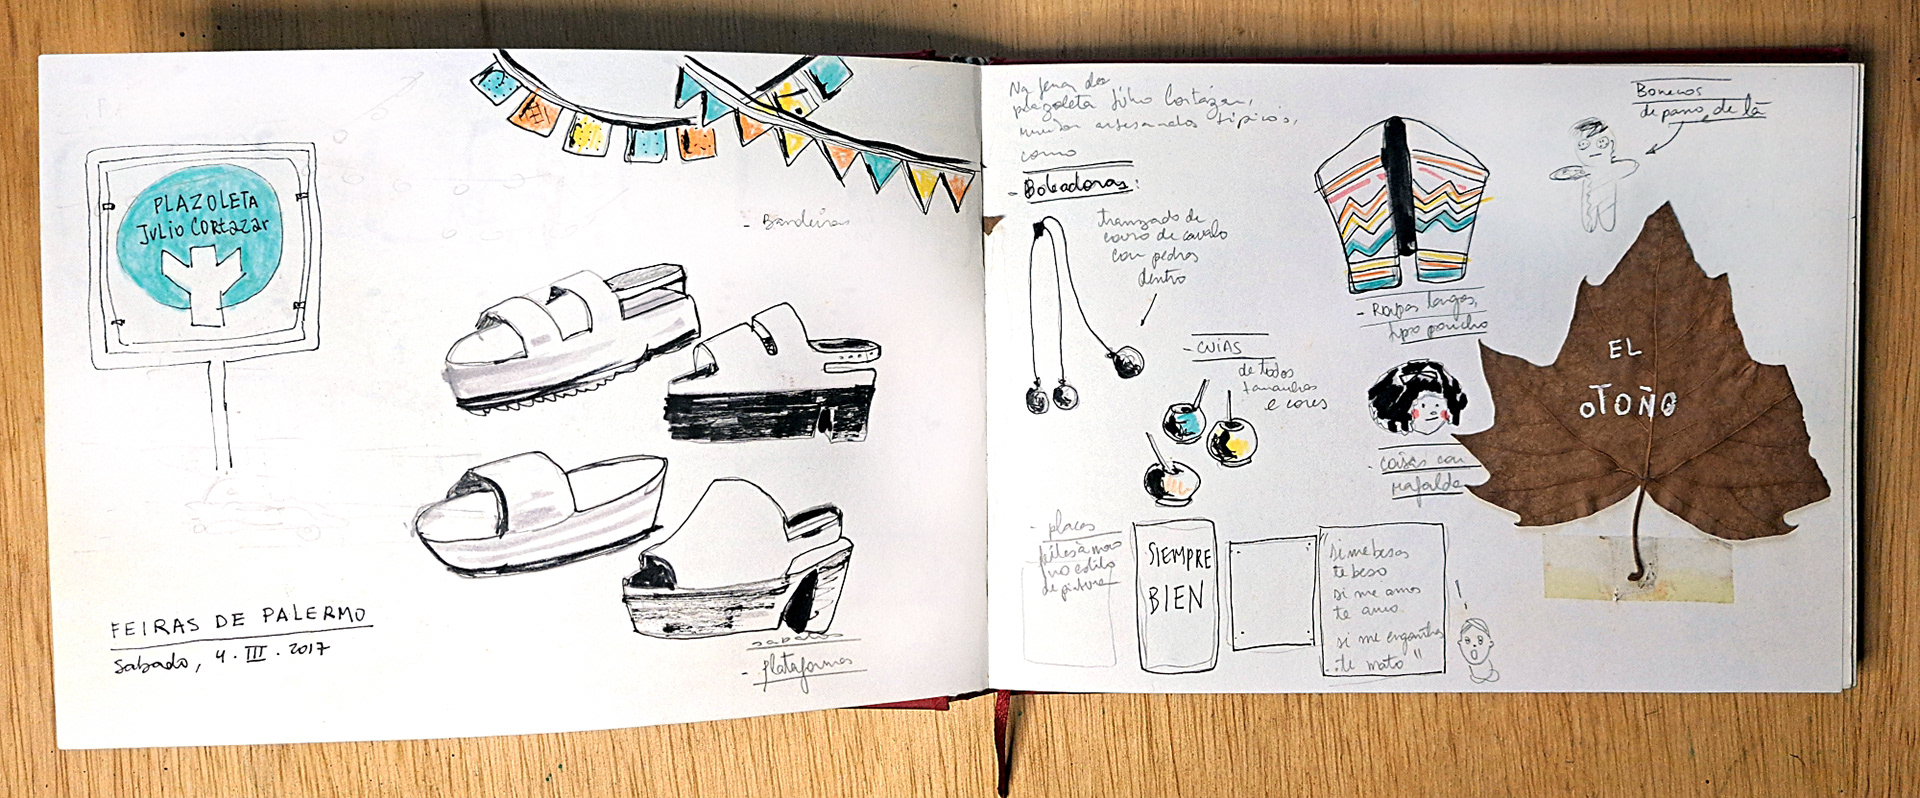 PLAZOLETA
Julio Cortazar
- Bandeiras
FEIRAS DE PALERMO
Sabado, 4 . III . 2017
sapatos
- plataformas
Na feira da
plazoleta Júlio Cortázar,
artesanatos típicos,
como
- Boleadoras:
tranzado de
couro de cavalo
con pedras
dentro
- CUIAS
de todos
tamanhos
e cores
- Roupas largas,
tipo poncho
Bonecos
de pano e de lã
- coisas con
Mafalda
EL
OTOÑO
- placas
feitas à mao
no estilo
de pintura
SIEMPRE
BIEN
"Si me besas
te beso
si me amas
te amo
si me engañas
te mato"
!